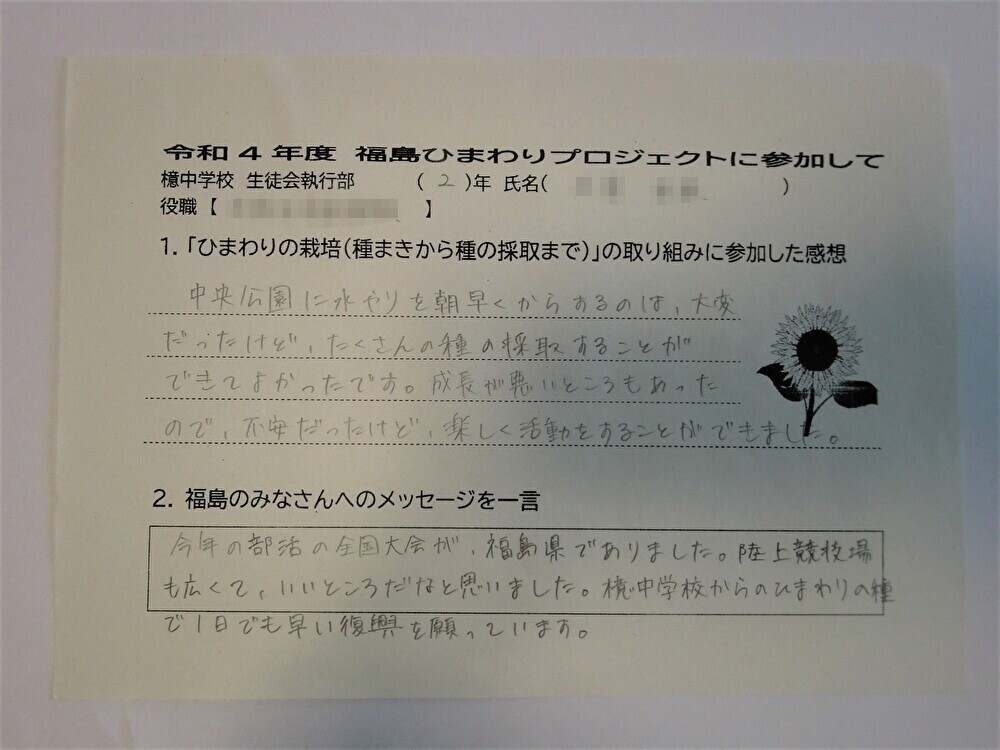 令和4年度 福島ひまわりプロジェクトに参加して
檍中学校 生徒会執行部 (2)年 氏名( )
役職【 】
1.「ひまわりの栽培(種まきから種の採取まで)」の取り組みに参加した感想
中央公園に水やりを朝早くからするのは、大変
だったけど、たくさんの種の採取することが
できてよかったです。成長が悪いところもあった
ので、不安だったけど、楽しく活動をすることができました。
2. 福島のみなさんへのメッセージを一言
今年の部活の全国大会が、福島県でありました。陸上競技場
も広くて、いいところだなと思いました。檍中学校からのひまわりの種
で1日でも早い復興を願っています。